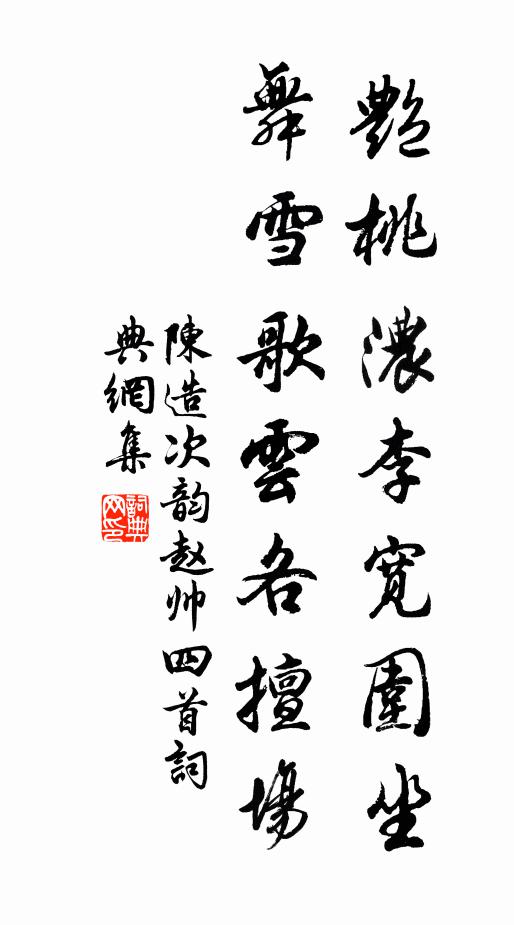 艷桃濃李寬圍坐
舞雪歌雲各擅場
陳造次韵赵帅四首詞
典網集
詞典
网印